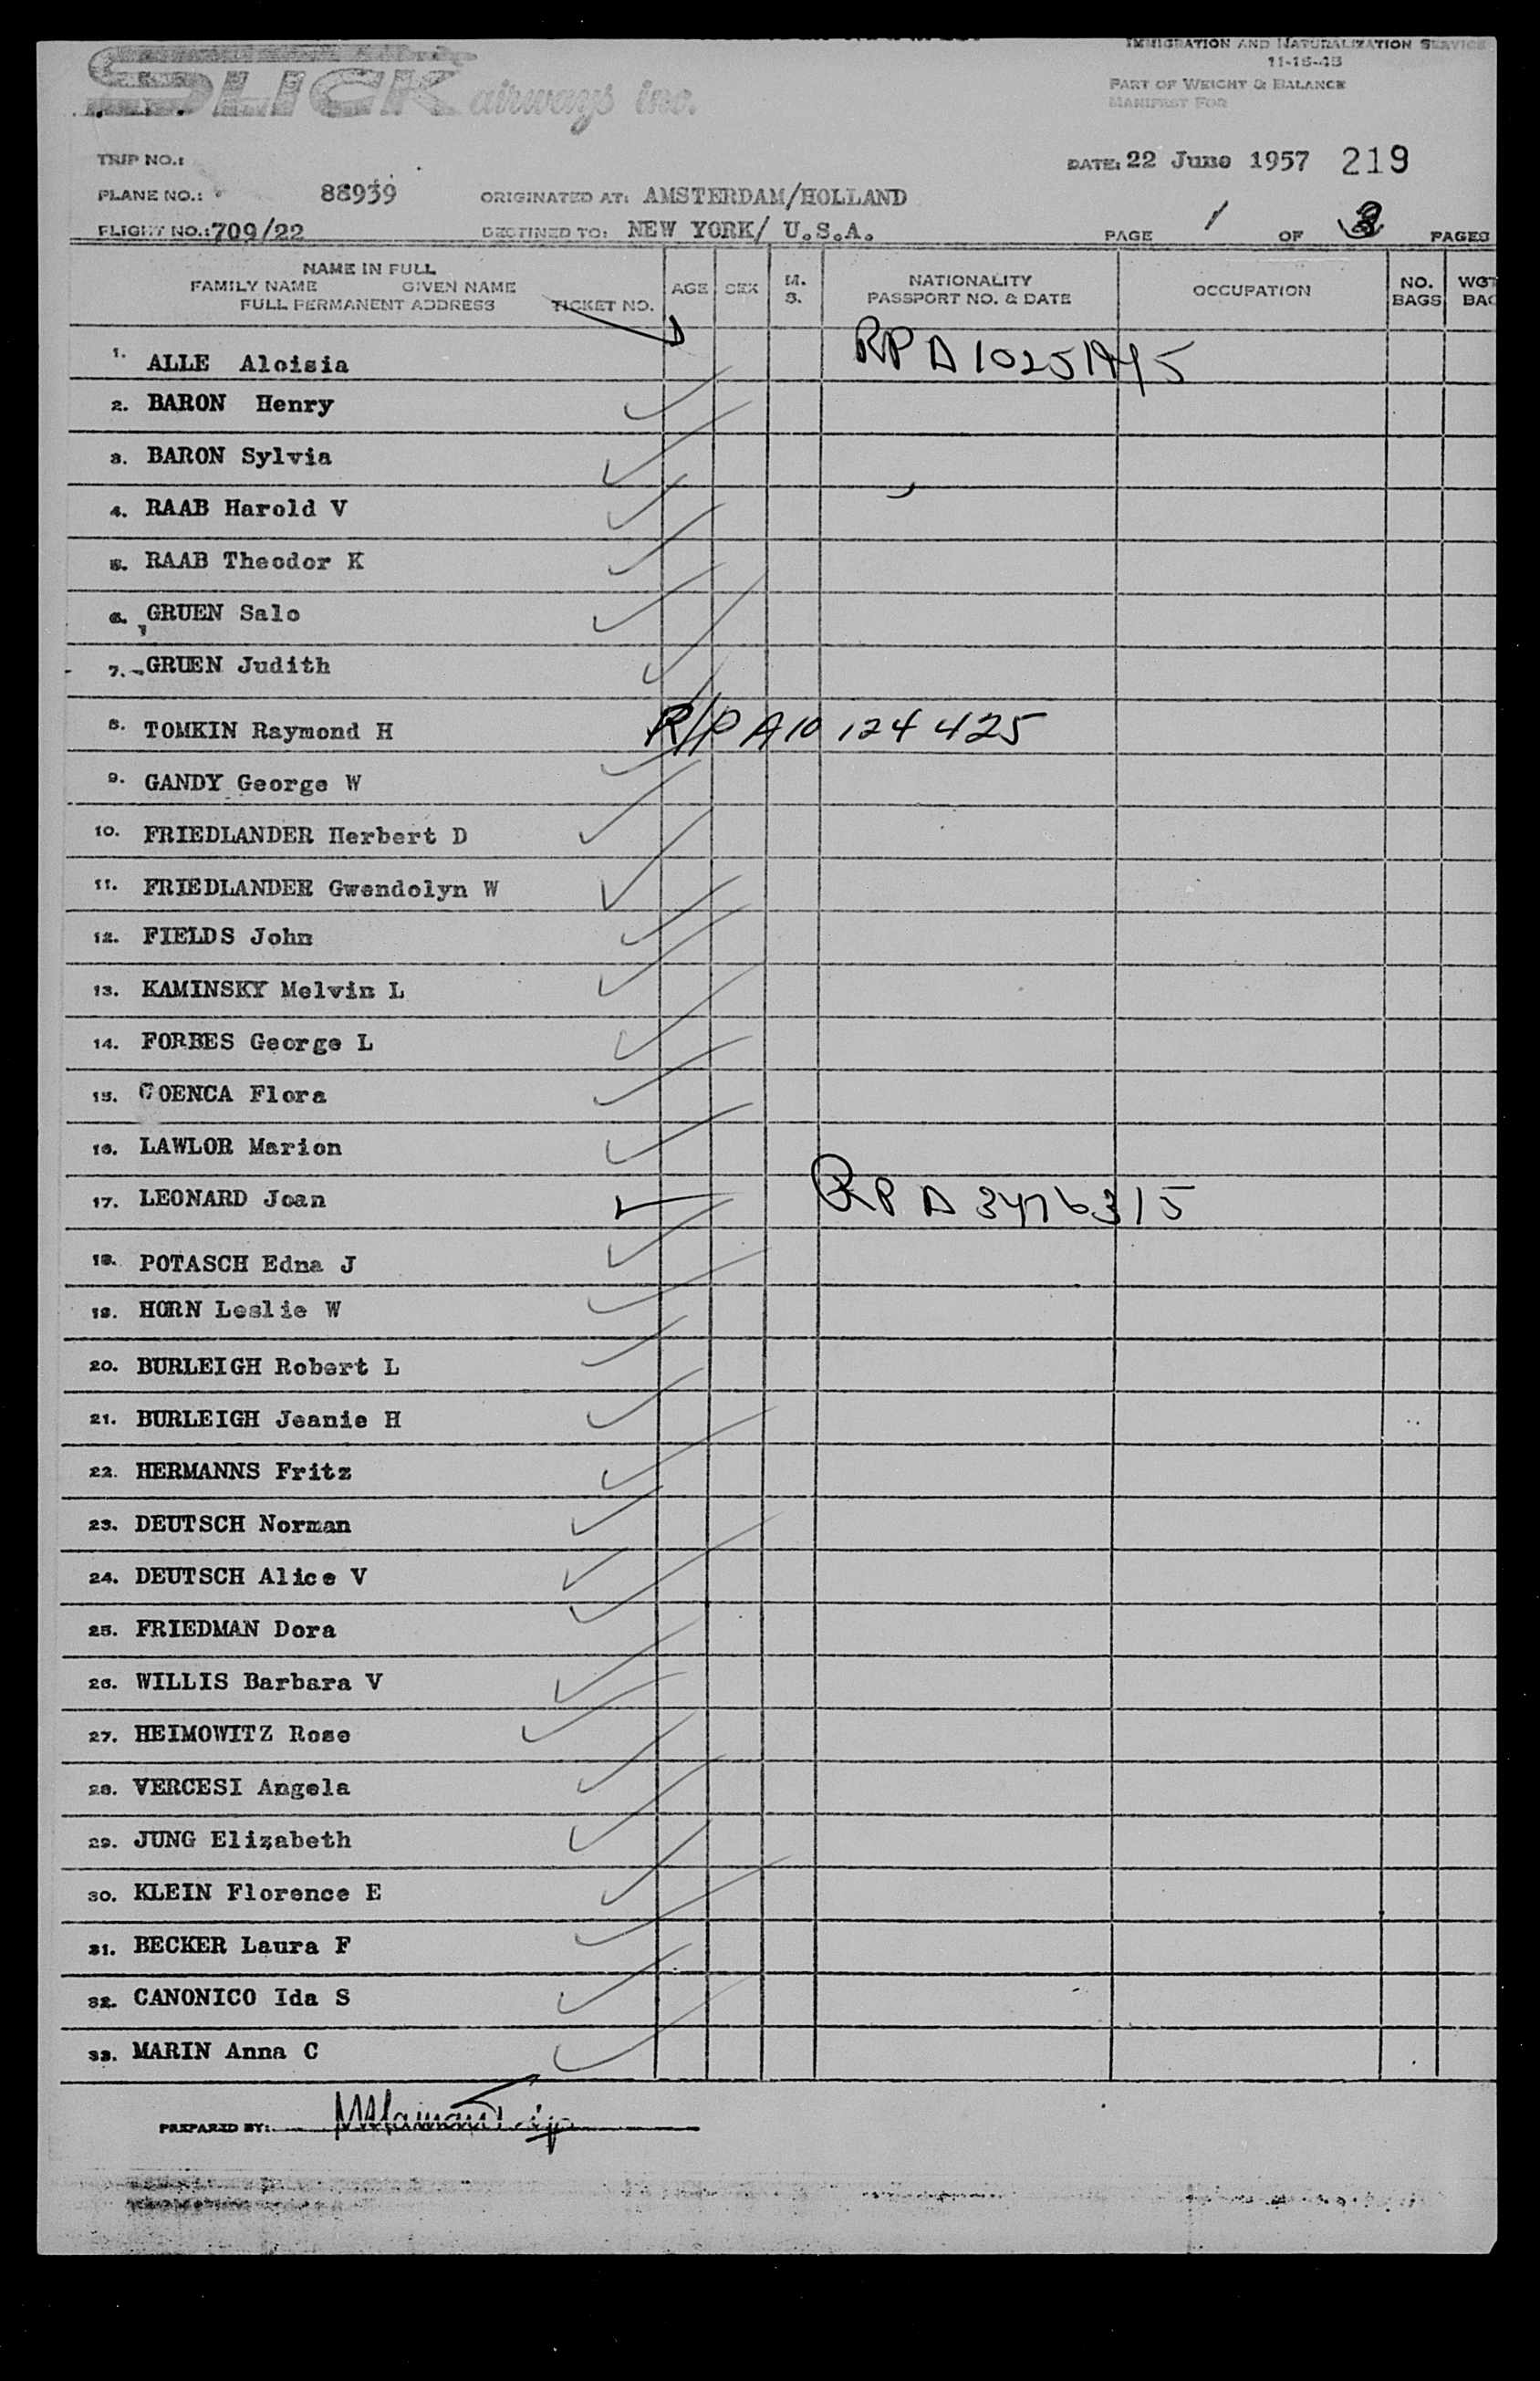 IMMIGRATION AND NATURALIZATION SERVICE
11-15-48
SLICK airways inc.
PART OF WEIGHT & BALANCE
MANIFEST FOR
TRIP NO.:
DATE: 22 June 1957 219
PLANE NO.: 88939 ORIGINATED AT: AMSTERDAM/HOLLAND
FLIGHT NO.: 709/22 DESTINED TO: NEW YORK/ U.S.A. PAGE 1 OF 3 PAGES
NAME IN FULL
FAMILY NAME GIVEN NAME
FULL PERMANENT ADDRESS TICKET NO.
AGE SEX M. S.
NATIONALITY
PASSPORT NO. & DATE
OCCUPATION
NO. BAGS
1. ALLE Aloisia RP A
2. BARON Henry
3. BARON Sylvia
4. RAAB Harold V
5. RAAB Theodor K
6. GRUEN Salo
7. GRUEN Judith
8. TOMKIN Raymond H R/P A10 124 425
9. GANDY George W
10. FRIEDLANDER Herbert D
11. FRIEDLANDER Gwendolyn W
12. FIELDS John
13. KAMINSKY Melvin L
14. FORBES George L
15. COENCA Flora
16. LAWLOR Marion
17. LEONARD Joan RP A 3476315
18. POTASCH Edna J
19. HORN Leslie W
20. BURLEIGH Robert L
21. BURLEIGH Jeanie H
22. HERMANNS Fritz
23. DEUTSCH Norman
24. DEUTSCH Alice V
25. FRIEDMAN Dora
26. WILLIS Barbara V
27. HEIMOWITZ Rose
28. VERCESI Angela
29. JUNG Elizabeth
30. KLEIN Florence E
31. BECKER Laura F
32. CANONICO Ida S
33. MARIN Anna C
PREPARED BY: